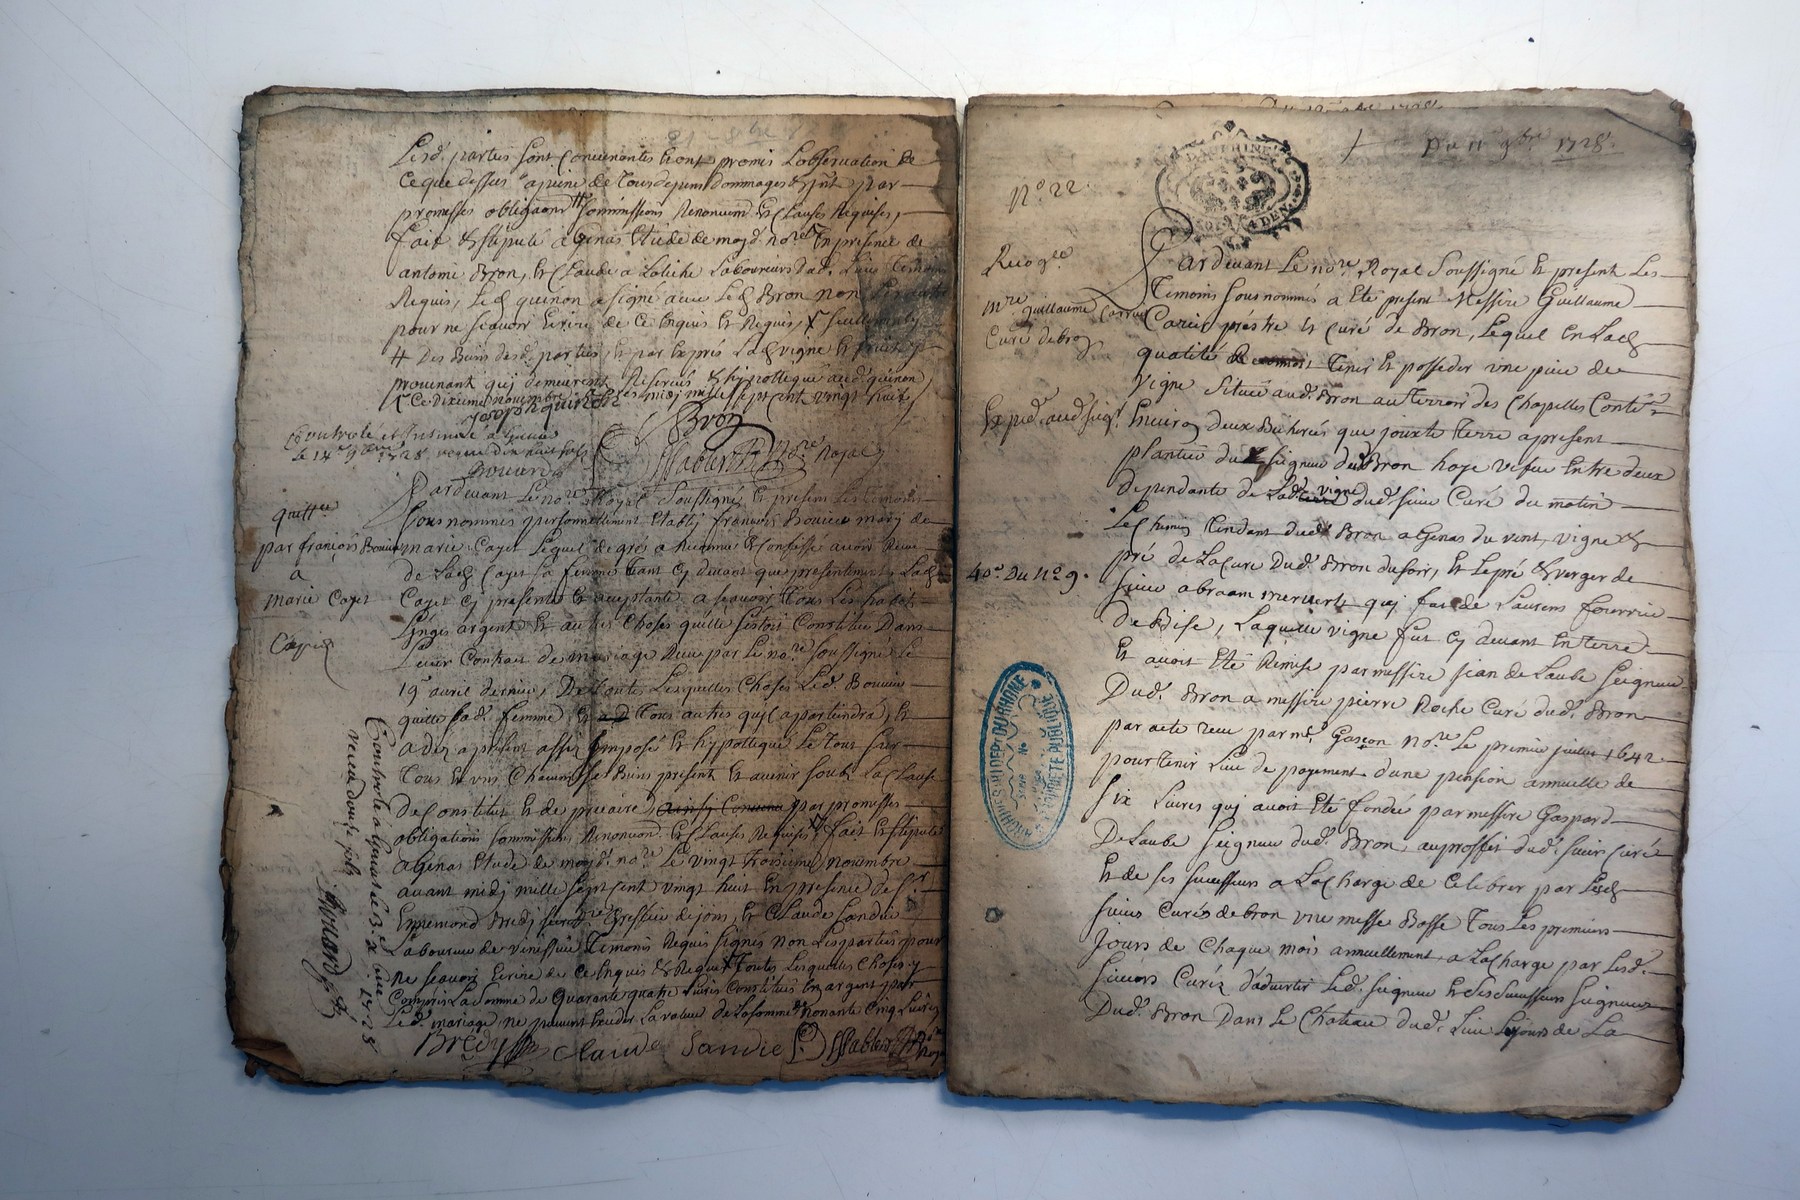 Lesd. parties sont Convenantes et ont promis L'observation de
Ce que dessus a peine de Tous depens dommages & jnt par
promesses obligaons soumissions Renonciaons et Clauses Requises,
fait & stipulé a Genas Etude de moyd. nore. En presence de
antoine Bron, et Claude a Laboureurs dud. Lieu Temoins
Requis, Led. quinon a signé avec Led. Bron non
pour ne sçavoir Ecrire de Ce Enquis et Requis,
# Des Biens desd. parties, et par Exprés Lad. vigne et
provenant quj demeurent Reservés & hypottequé aud. quinon
Ce Dixieme novembre midj mille sept cent vingt huit
Joseph quinon
Bron
Controlé et Insinué a Genas
le 14e 9bre 1728 Nore. Royal
pardevant Le nore. Royal Soussigné, & present Les temoins
sous nommés personnellement Etablj françois Bouvier marj de
marie Cayet Lequel de gré a Reconnu & Confessé avoir Receu
de Lad. Cayet sa femme tant Cj devant que presentement, Lad.
Cayet Cj presente & acceptante a sçavoir Tous Les habits
Linges argent et autres Choses qu'elle s'estoit Constitué Dans
Leur Contrat de mariage Receu par Le nore. Soussigné Le
19e avril dernier, De toutes Lesquelles Choses Led. Bouvier
quitte sad. femme, et Tous autres qu'jl apartiendra, et
a dez a present assis Imposé et hypottequé Le Tout sur
Tous et uns Chacuns ses Biens present et avenir soubs La Clause
de Constitut et de precaire, par promesses
obligations soumissions Renonciaon et Clauses Requises fait & stipulé
a Genas Etude de moyd. nore. Le vingt Troisieme novembre
avant midj mille sept cent vingt huit En presence de Sr.
Bredj Greffier de jons, et Claude Landié
Laboureur de venissieu Temoins Requis signés non Les parties pour
ne sçavoir Ecrire de Ce Enquis & Requis Toutes Lesquelles Choses y
Compris La Somme de Quarante quatre Livres Constitués En argent par
Led. mariage ne peuvent Exceder La valeur de La somme de Nonante Cinq Livres
Bredy Claude Landié
quittce
par françois Bouvier
a
Marie Cayet
Copié
Controlé a Genas le 3e xbre 1728
receu douze sols
Du 11e 9bre 1728.
No. 22.
DAUPHINE
DEN.
Recogce
Mre. guillaume Carrie
Curé de bron
Expé. aud. seigr.
40e. Du No 9.
ARCHIVES DU DEPt DU RHONE
PROPRIÉTÉ PUBLIQUE
Pardevant Le nore. Royal Soussigné et present Les
Temoins sous nommés a Eté present Messire Guillaume
Carrie prestre et Curé de Bron, Lequel En Lad.
qualité Tenir et posseder une piece de
vigne Situee aud. Bron au terroir des Chapelles Contett.
Environ deux Bicherées que jouxte terre a present
plantée du seigneur dud. Bron haye vifve Entre deux
dependante de Lad. vigne dud. sieur Curé du matin
Le Chemin Tendant dud. Bron a Genas du vent, vigne &
pré de La Cure Dud. Bron du soir, et Le pré & verger de
sieur abraam quj fut de Laurens fourrier
De Bise, Laquelle vigne fut Cj devant En terre
Et avoit Eté Remise par messire jean de Laube Seigneur
Dud. Bron a messire pierre Roche Curé dud. Bron
par acte receu par me. Gascon nore. Le premier juillet 1642
pour tenir Lieu de payement d'une pension annuelle de
Six Livres quj avoit Eté fondée par messire Gaspard
De Laube Seigneur dud. Bron, au proffit dud. sieur curé
Et de ses successeurs a La Charge de Celebrer par Lesd.
sieurs Curés de bron une messe Basse Tous Les premiers
Jours de Chaque mois annuellement a La Charge par Lesd.
Sieurs Curéz d'advertir Led. Seigneur et Ses Successeurs Seigneurs
Dud. Bron Dans Le Chateau dud. Lieu Le jour de La